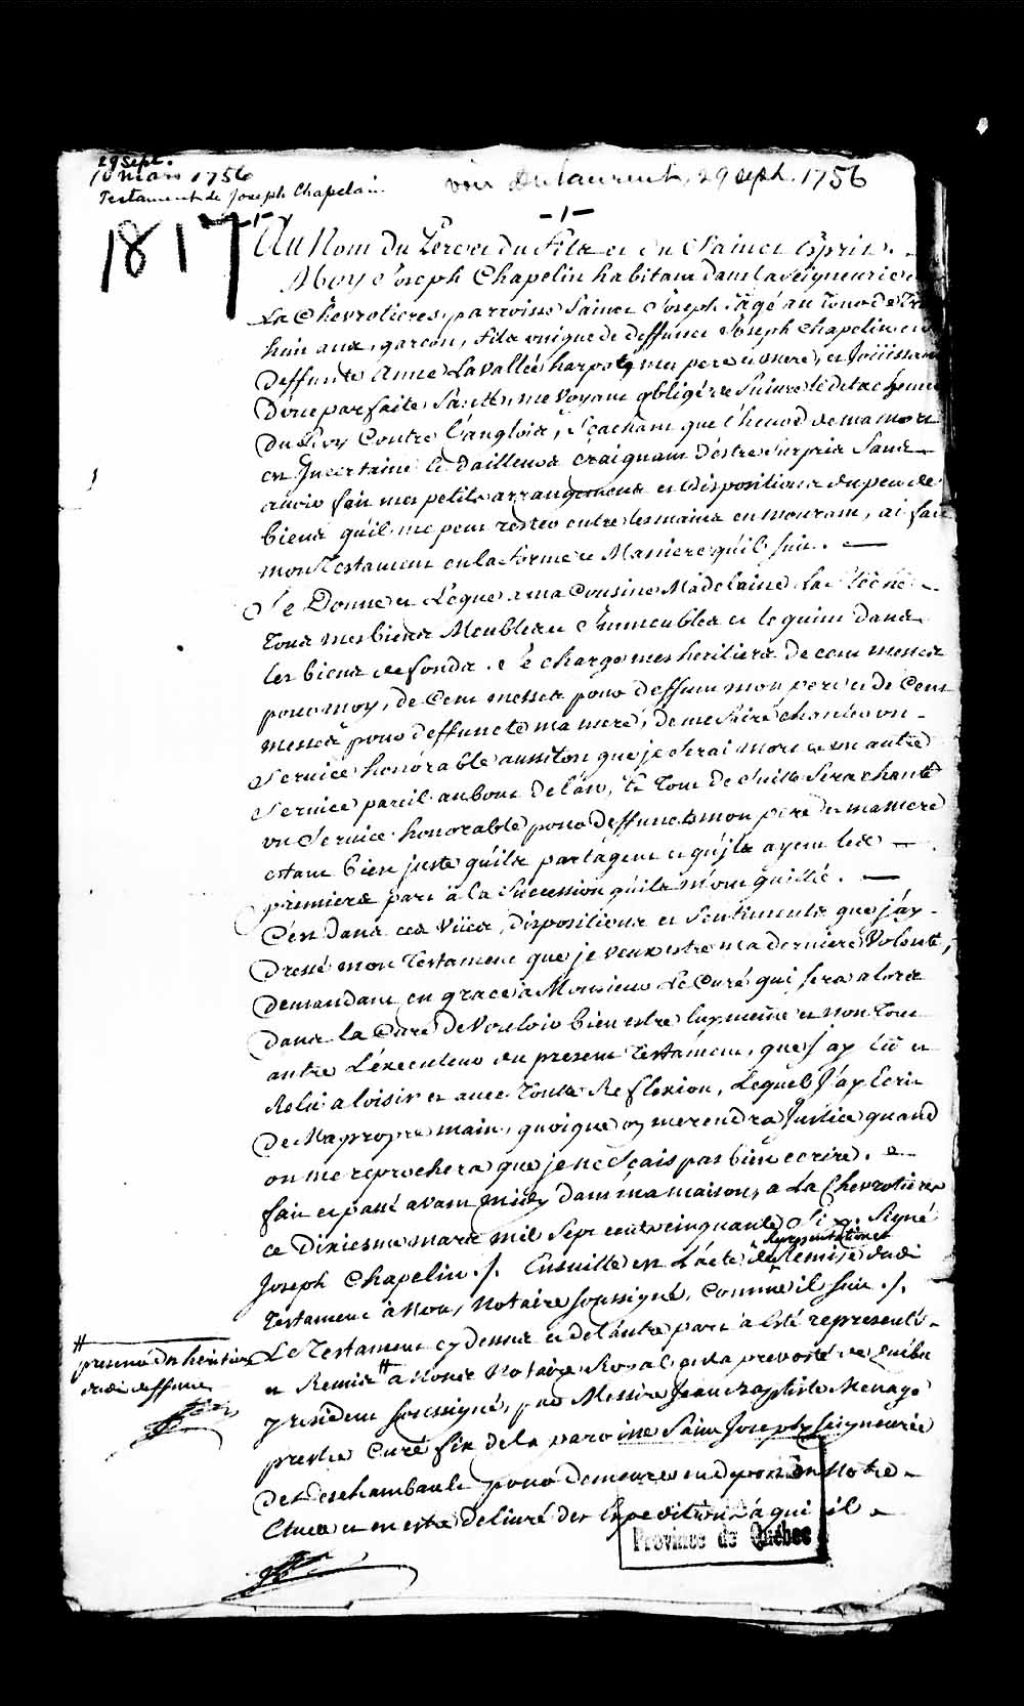 29 Sept.
10 mars 1756
Testament de Joseph Chapelain
voir Dulaurent, 29 sept. 1756
1817
-1-
Au Nom du Pere et du Fils et du Sainct Esprit.
Moy Joseph Chapelin habitant dans la seigneurie de
La Chevrotiere, parroisse Sainct Joseph, âgé au
huit ans, garçon, fils unique de deffunct Joseph Chapelin et
deffunte Anne Lavallée mes pere et mere, et Joüissant
d'une parfaite santé, me voyant obligé de suivre le détachement
du Roy contre l'anglois, sçachant que l'heure de ma mort
est Incertaine et d'ailleurs craignant d'estre surpris sans
avoir fait mes petits arrangements et dispositions du peu de
biens qu'il me peut rester entre les mains en mourant, ai fait
mon Testament en la forme et Maniere qu'il suit.
Je Donne et Legue a ma Cousine Madelaine
Tous mes biens Meubles et Immeubles et le quint dans
les biens de fonds. Je charge mes heritiers de cent messes
pour moy, de Cent messes pour deffunt mon pere et de Cent
messes pour deffuncte ma mere, de me faire chanter un
service honorable aussitost que je serai mort et un autre
service pareil au bout de l'an, Et Tout de suite sera chanté
un service honorable pour deffuncts mon pere et ma mere
estant bien juste qu'ils partagent et qu'ils ayent les
premiers part à la succession qu'ils m'ont quitté.
C'est dans ces vües, dispositions et sentiments que j'ay
Dressé mon Testament que je veux estre ma derniere Volonté,
demandant en grace à Monsieur Le Curé qui sera alors
dans la Cure de vouloir bien estre luy meme et non Tout
autre L'éxecuteur du present Testament, que j'ay lû et
Relû a loisir et avec Toute Reflexion, Lequel J'ay Ecrit
de Ma propre main, quoique on me rendra Justice quand
on me reprochera que je ne sçais pas bien ecrire.
fait et passé avant midy dans ma maison, a La Chevrotiere
ce Dixiesme mars mil sept cents cinquante Six. Signé
Representation et
Joseph Chapelin ./. Ensuitte est L'acte de Remise dudit
Testament à Nous, Notaire soussigné, Comme il suit ./.
Le Testament cy dessus et de l'autre part à Esté representé
et Remis # a Nous Notaire Royal en la prevosté de Quebec
y resident soussigné, par Messire Jean Baptiste Menage
prestre Curé de la paroisse Saint Joseph Seigneurie
de Deschambault pour demeurer en depost en Notre
Etude et en estre delivré des Expeditions à qui il
# presence des heritiers
dudit deffunt
Province de Québec